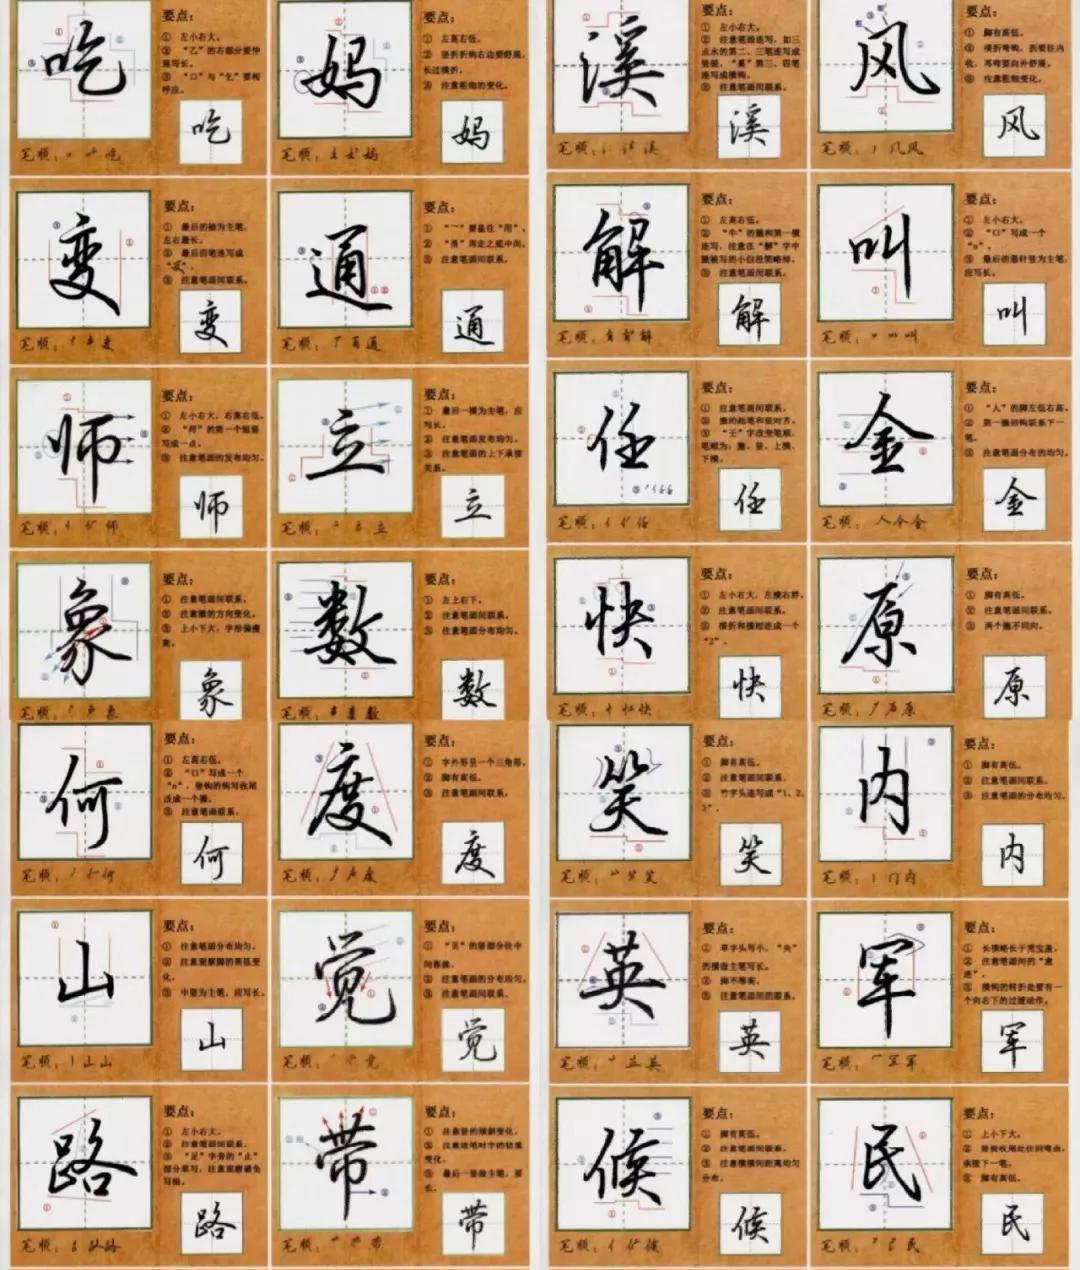 吃
要点：
① 左小右大。
② “乙”的右部分要伸
展写长。
③ “口”与“乞”要相
呼应。
吃
笔顺：
妈
要点：
① 左高右低。
② 竖折折钩右边要舒展，
长过横折。
③ 注意粗细的变化。
妈
笔顺：
溪
要点：
① 左小右大。
② 注意笔画连写，如三
点水的第二、三笔连写成
竖提，“奚”第三、四笔
连写成横钩。
③ 注意笔画间联系。
溪
笔顺：
风
要点：
① 脚有高低。
② 横折弯钩，折要往内
收，耳弯要向外舒展。
③ 注意粗细变化。
风
笔顺：
变
要点：
① 最后的捺为主笔，
左右最长。
② 最后四笔连写成
③ 注意笔画间联系。
变
笔顺：
通
要点：
① “マ”要盖住“用”。
② “甬”再走之底中间。
③ 注意笔画间联系。
通
笔顺：
解
要点：
① 左高右低。
② “牛”的撇和第一横
连写，注意在“解”字中
撇被写的小但没简略掉。
③ 注意笔画间联系。
解
笔顺：
叫
要点：
① 左小右大。
② “口”写成一个
“n”。
③ 最后的悬针竖为主笔，
应写长。
叫
笔顺：
师
要点：
① 左小右大，右高右低。
② “师”的第一个短竖
写成一点。
③ 注意笔画的发布均匀。
师
笔顺：
立
要点：
① 最后一横为主笔，应
写长。
② 注意笔画发布均匀。
③ 注意笔画的上下承接
关系。
立
笔顺：
任
要点：
① 注意笔画间联系。
② 撇的起笔和弧对齐。
③ “壬”字改变笔顺，
笔顺为：撇、竖、上横、
下横。
任
笔顺：
金
要点：
① “人”的脚左低右高。
② 第一横回钩联系下一
笔。
③ 注意笔画分布的均匀。
金
笔顺：人今金
象
要点：
① 注意笔画间联系。
② 注意撇的方向变化。
③ 上小下大，字形偏瘦
高。
象
笔顺：
数
要点：
① 左上右下。
② 注意笔画间联系。
③ 注意笔画分布均匀。
数
笔顺：
快
要点：
① 左小右大，左瘦右胖。
② 注意笔画间联系。
③ 横折和横相连成一个
“3”。
快
笔顺：
原
要点：
① 脚有高低。
② 注意笔画间联系。
③ 两个撇不同向。
原
笔顺：
何
要点：
① 左高右低。
② “口”写成一个
“n”，竖钩的钩写收尾
改成一个撇。
③ 注意笔画间联系。
何
笔顺：
度
要点：
① 字外形呈一个三角形。
② 脚有高低。
③ 注意笔画间联系。
度
笔顺：
笑
要点：
① 脚有高低。
② 注意笔画间联系。
③ 竹字头连写成“1、2、
3”。
笑
笔顺：
内
要点：
① 脚有高低。
② 注意笔画间联系。
③ 注意笔画的分布均匀。
内
笔顺：
山
要点：
① 注意笔画分布均匀。
② 注意观察脚的高低变
化。
③ 中竖为主笔，应写长。
山
笔顺：
觉
要点：
① “见”的竖部分往中
间靠拢。
② 注意笔画的分布均匀。
③ 注意笔画间联系。
觉
笔顺：
英
要点：
① 草字头写小，“央”
的横做主笔写长。
② 脚不等高。
③ 注意笔画间的联系。
英
笔顺：
军
要点：
① 长横略长于秃宝盖。
② 注意笔画间的“意
连”。
③ 横钩的转折处要有一
个向右下的过渡动作。
军
笔顺：
路
要点：
① 左小右大。
② 注意笔画间联系。
③ “足”字旁的“止”
部分草写，注意观察避免
写错。
路
笔顺：
带
要点：
① 注意竖的倾斜变化。
② 注意连笔对字的轻重
变化。
③ 最后一竖做主笔，要
长。
带
笔顺：
候
要点：
① 脚有高低。
② 注意笔画间联系。
③ 注意横横间距离均匀
分布。
候
笔顺：
民
要点：
① 上小下大。
② 竖提收尾处往回弯曲，
承接下一笔。
③ 脚有高低。
民
笔顺：